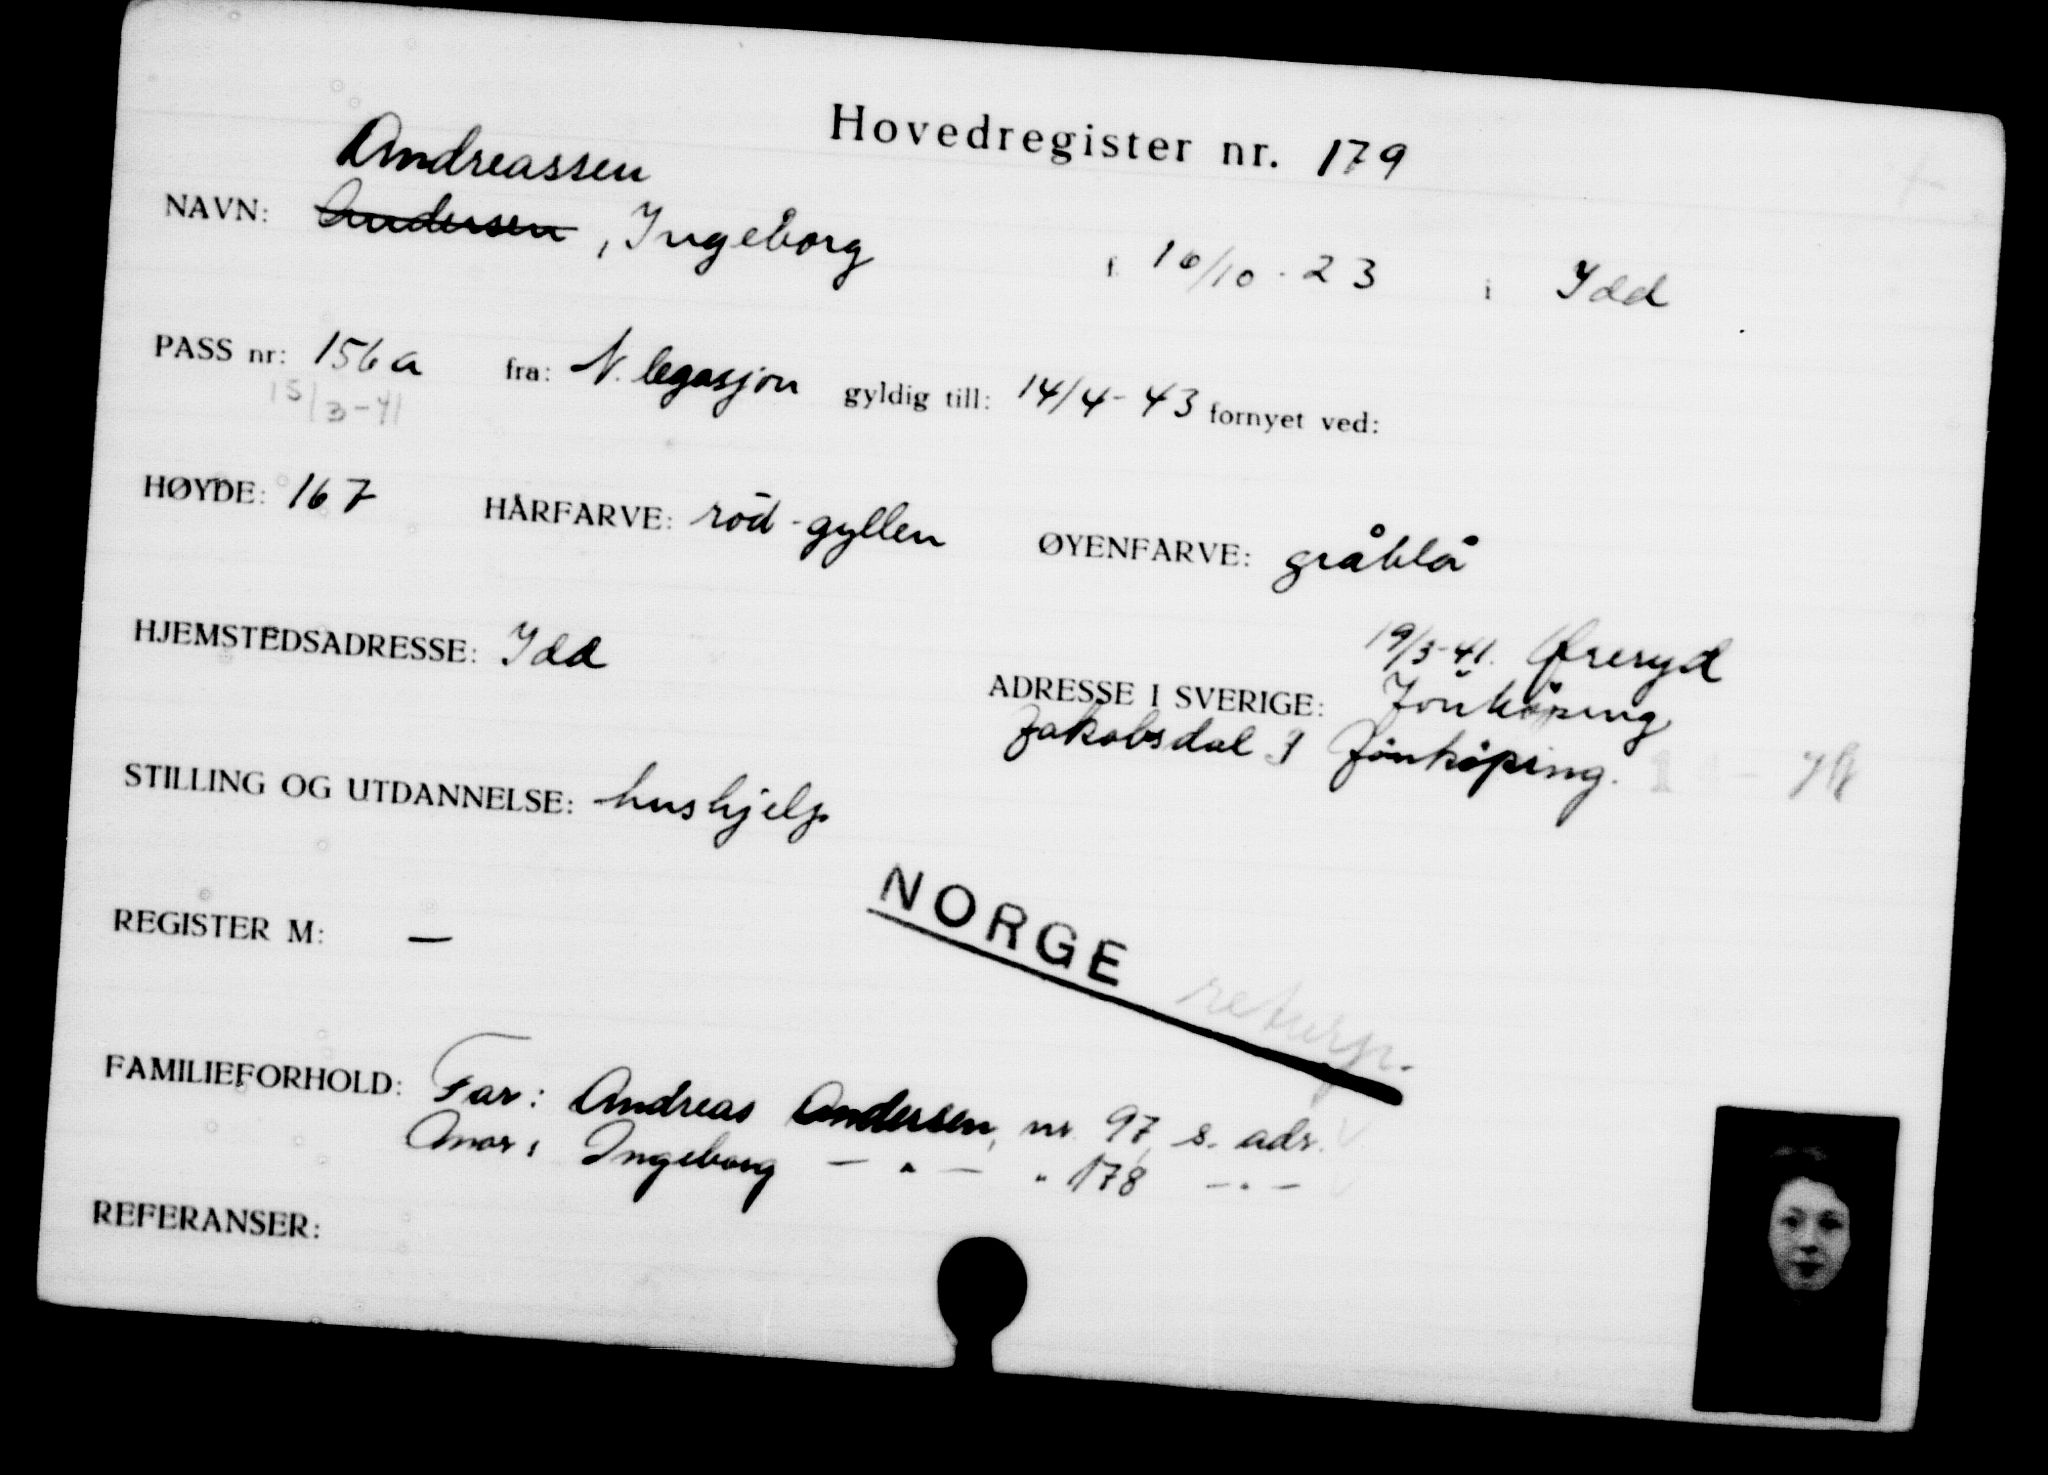 Hovedregister nr. 179
Andreassen
NAVN: Andersen, Ingeborg f. 16/10-23 i Idd
PASS nr: 156a fra: N. legasjon gyldig till: 14/4-43 fornyet ved:
15/3-41
HØYDE: 167 HÅRFARVE: rød-gyllen ØYENFARVE: gråblå
HJEMSTEDSADRESSE: Idd
19/3-41. Øreryd
ADRESSE I SVERIGE: Jönköping
Jakobsdal Jönköping.
STILLING OG UTDANNELSE: hushjelp
REGISTER M: —
NORGE
FAMILIEFORHOLD: Far: Andreas Andersen, nr. 97, s. adr.
Mor: Ingeborg — " — " 178 — " —
REFERANSER: